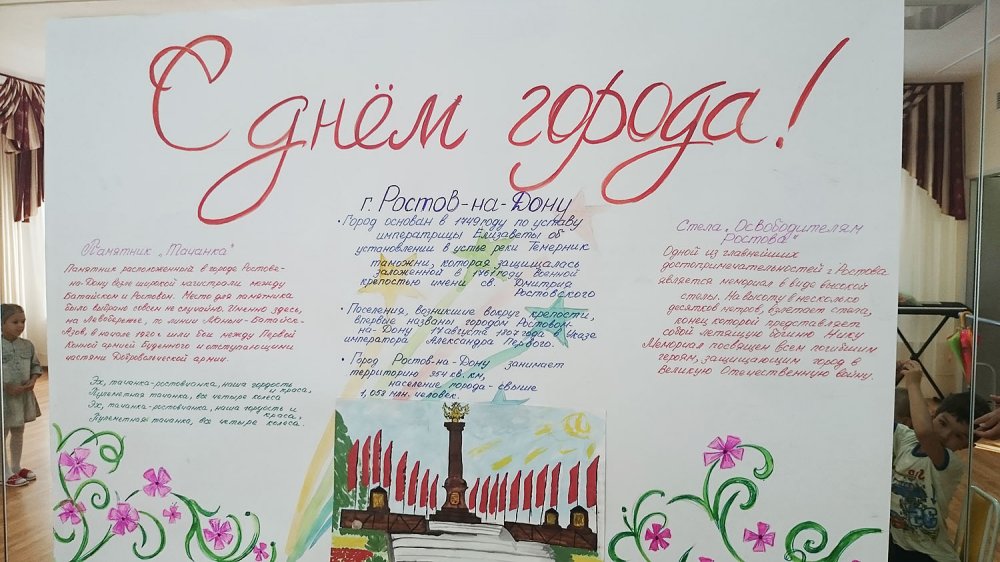 С днём города!
г. Ростов-на-Дону
• Город основан в 1749 году по уставу
императрицы Елизаветы об
установлении в устье реки Темерник
таможни, которая защищалась
заложенной в 1761 году военной
крепостью имени св. Дмитрия
Ростовского
• Поселения, возникшие вокруг крепости,
впервые названы городом Ростовом-
на-Дону 17 августа 1807 года в Указе
императора Александра Первого.
• Город Ростов-на-Дону занимает
территорию 354 кв. км,
население города - свыше
1,058 млн. человек.
Памятник „Тачанка"
Памятник расположенный в городе Ростове-
на-Дону возле широкой магистрали между
Батайском и Ростовом. Место для памятника
было выбрано совсем не случайно. Именно здесь,
на Левобережье, по линии Маныч-Батайск-
Азов, в начале 1920 г. шли бои между Первой
Конной армией Буденного и отступающими
частями Добровольческой армии.
Эх, тачанка-ростовчанка, наша гордость
и краса,
Пулеметная тачанка, все четыре колеса
Эх, тачанка-ростовчанка, наша гордость и
краса,
Пулеметная тачанка, все четыре колеса.
Стела „Освободителям
Ростова"
Одной из главнейших
достопримечательностей г. Ростова
является мемориал в виде высокой
стелы. На высоту в несколько
десятков метров, взлетает стела,
конец которой представляет
собой летящую Богиню Нику
Мемориал посвящен всем погибшим
героям, защищающим город в
Великую Отечественную войну.